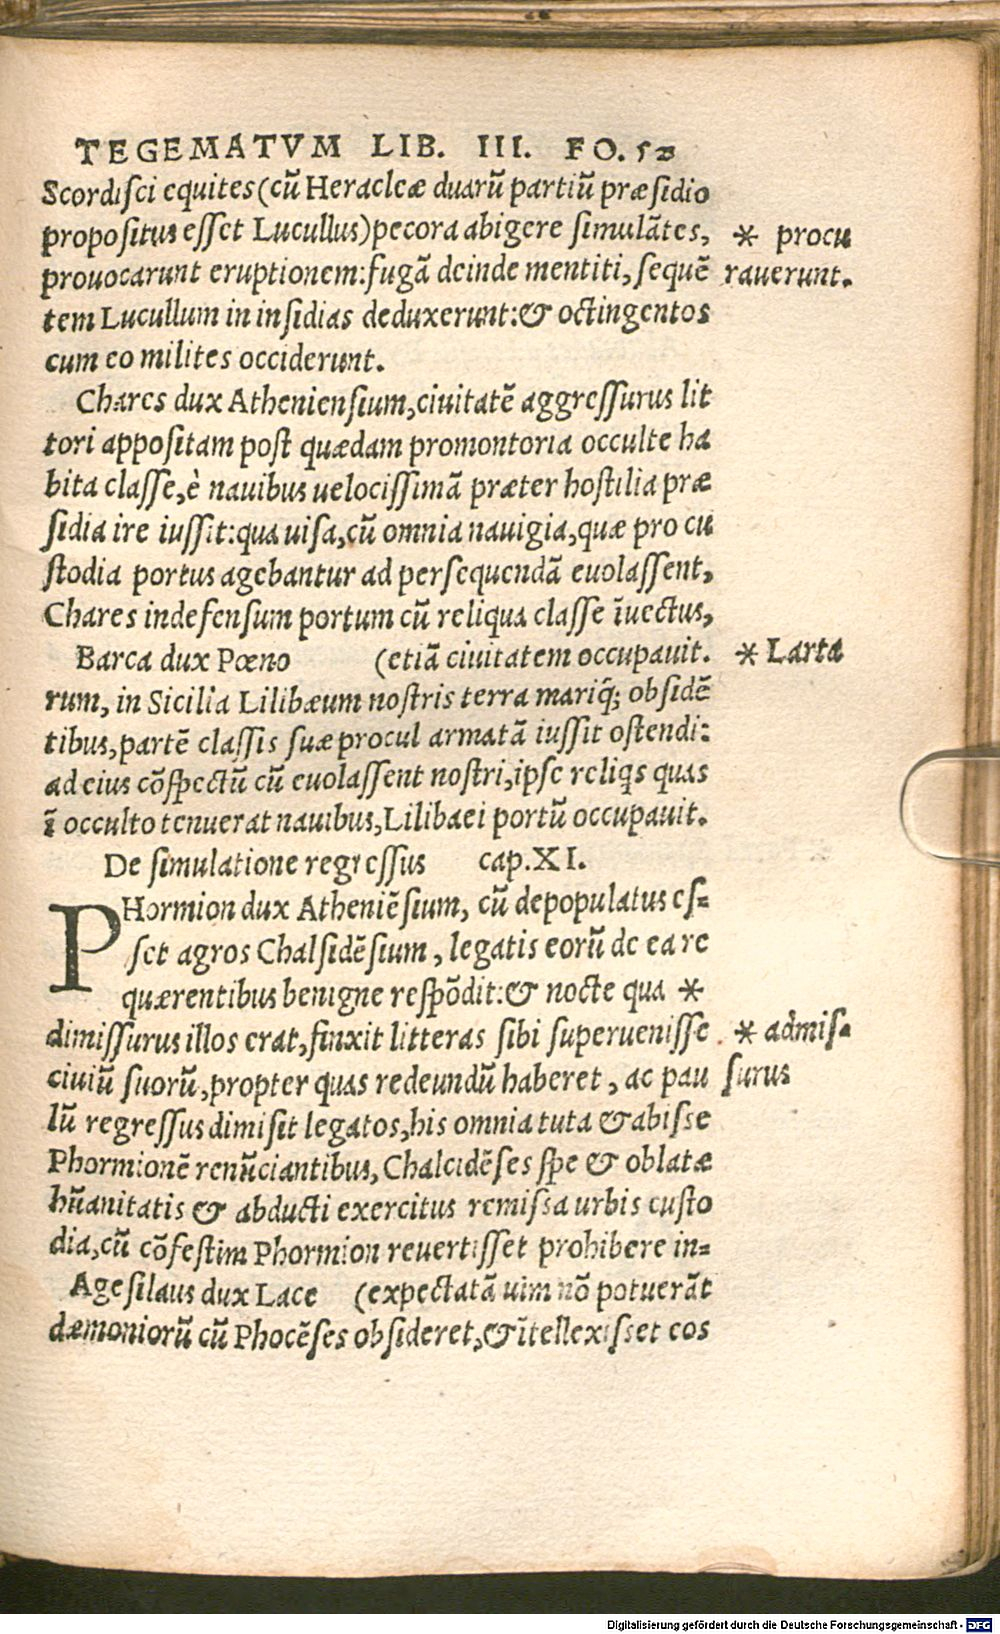 TEGEMATVM LIB. III. FO. 52
Scordiſci equites (cū Heracleæ duarū partiū præſidio
propoſitus eſſet Lucullus) pecora abigere ſimulātes,
* procu
prouocarunt eruptionem: fugā deinde mentiti, ſequē
rauerunt.
tem Lucullum in inſidias deduxerunt: & octingentos
cum eo milites occiderunt.
Chares dux Athenienſium, ciuitatē aggreſſurus lit
tori appoſitam poſt quædam promontoria occulte ha
bita claſſe, è nauibus uelociſſimā præter hoſtilia præ
ſidia ire iuſſit: qua uiſa, cū omnia nauigia, quæ pro cu
ſtodia portus agebantur ad perſequendā euolaſſent,
Chares indefenſum portum cū reliqua claſſe īuectus,
Barca dux Pœno (etiā ciuitatem occupauit.
* Larta
rum, in Sicilia Lilibæum noſtris terra mariq; obſidē
tibus, partē claſſis ſuæ procul armatā iuſſit oſtendi:
ad eius cōſpectū cū euolaſſent noſtri, ipſe reliqs quas
ī occulto tenuerat nauibus, Lilibaei portū occupauit.
De ſimulatione regreſſus cap. XI.
PHormion dux Atheniēſium, cū depopulatus eſ-
ſet agros Chalſidēſium, legatis eorū de ea re
quærentibus benigne reſpōdit: & nocte qua *
dimiſſurus illos erat, finxit litteras ſibi ſuperueniſſe
* admiſ-
ciuiū ſuorū, propter quas redeundū haberet, ac pau
ſurus
lū regreſſus dimiſit legatos, his omnia tuta & abiſse
Phormionē renūciantibus, Chalcidēſes ſpe & oblatæ
hūanitatis & abducti exercitus remiſsa urbis cuſto
dia, cū cōfeſtim Phormion reuertiſſet prohibere in-
Ageſilaus dux Lace (expectatā uim nō potuerāt
dæmoniorū cū Phocēſes obſideret, & ītellexiſſet eos
Digitalisierung gefördert durch die Deutsche Forschungsgemeinschaft - DFG